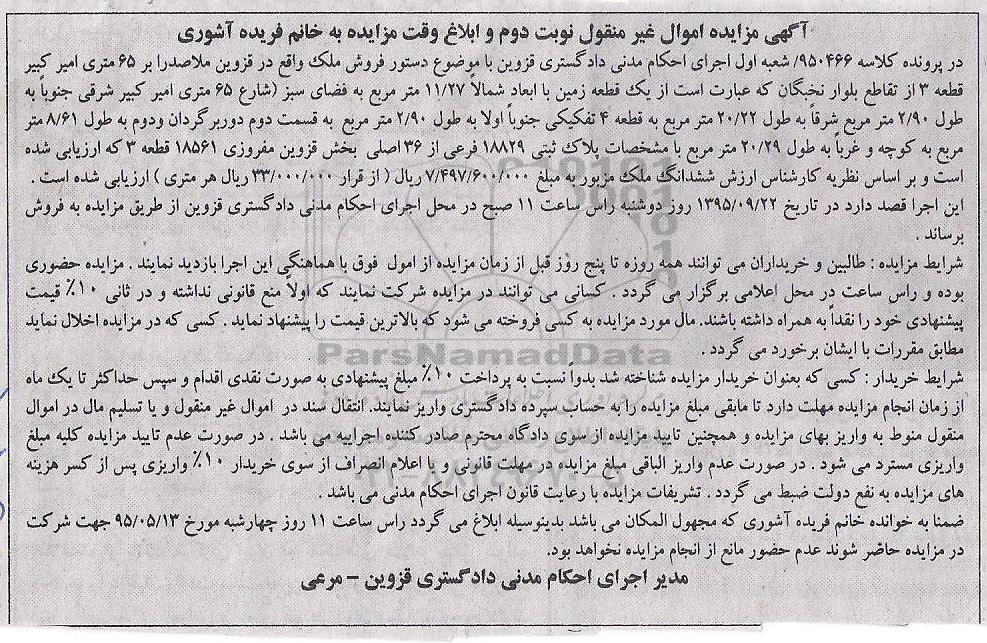 آگهی مزایده اموال غیر منقول نوبت دوم و ابلاغ وقت مزایده به خانم فریده آشوری
در پرونده کلاسه ۹۵۰۴۶۶/ شعبه اول اجرای احکام مدنی دادگستری قزوین با موضوع دستور فروش ملک واقع در قزوین ملاصدرا بر ۶۵ متری امیر کبیر
قطعه ۳ از تقاطع بلوار نخبگان که عبارت است از یک قطعه زمین با ابعاد شمالاً ۱۱/۲۷ متر مربع به فضای سبز (شارع ۶۵ متری امیر کبیر شرقی جنوباً به
طول ۲/۹۰ متر مربع شرقاً به طول ۲۰/۲۲ متر مربع به قطعه ۴ تفکیکی جنوباً اولا به طول ۲/۹۰ متر مربع به قسمت دوم دوربرگردان ودوم به طول ۸/۶۱ متر
مربع به کوچه و غرباً به طول ۲۰/۲۹ متر مربع با مشخصات پلاک ثبتی ۱۸۸۲۹ فرعی از ۳۶ اصلی بخش قزوین مفروزی ۱۸۵۶۱ قطعه ۳ که ارزیابی شده
است و بر اساس نظریه کارشناس ارزش ششدانگ ملک مزبور به مبلغ ۷/۴۹۷/۶۰۰/۰۰۰ ریال ( از قرار ۳۳/۰۰۰/۰۰۰ ریال هر متری ) ارزیابی شده است .
این اجرا قصد دارد در تاریخ ۱۳۹۵/۰۹/۲۲ روز دوشنبه راس ساعت ۱۱ صبح در محل اجرای احکام مدنی دادگستری قزوین از طریق مزایده به فروش
برساند .
شرایط مزایده : طالبین و خریداران می توانند همه روزه تا پنج روز قبل از زمان مزایده از امول فوق با هماهنگی این اجرا بازدید نمایند . مزایده حضوری
بوده و راس ساعت در محل اعلامی برگزار می گردد . کسانی می توانند در مزایده شرکت نمایند که اولاً منع قانونی نداشته و در ثانی ۱۰٪ قیمت
پیشنهادی خود را نقداً به همراه داشته باشند. مال مورد مزایده به کسی فروخته می شود که بالاترین قیمت را پیشنهاد نماید . کسی که در مزایده اخلال نماید
مطابق مقررات با ایشان برخورد می گردد .
ParsNamadData
شرایط خریدار : کسی که بعنوان خریدار مزایده شناخته شد بدوا نسبت به پرداخت ۱۰٪ مبلغ پیشنهادی به صورت نقدی اقدام و سپس حداکثر تا یک ماه
از زمان انجام مزایده مهلت دارد تا مابقی مبلغ مزایده را به حساب سپرده دادگستری واریز نمایند. انتقال سند در اموال غیر منقول و یا تسلیم مال در اموال
منقول منوط به واریز بهای مزایده و همچنین تایید مزایده از سوی دادگاه محترم صادر کننده اجراییه می باشد . در صورت عدم تایید مزایده کلیه مبلغ
واریزی مسترد می شود . در صورت عدم واریز الباقی مبلغ مزایده در مهلت قانونی و یا اعلام انصراف از سوی خریدار ۱۰٪ واریزی پس از کسر هزینه
های مزایده به نفع دولت ضبط می گردد . تشریفات مزایده با رعایت قانون اجرای احکام مدنی می باشد .
ضمنا به خوانده خانم فریده آشوری که مجهول المکان می باشد بدینوسیله ابلاغ می گردد راس ساعت ۱۱ روز چهارشبه مورخ ۹۵/۰۵/۱۳ جهت شرکت
در مزایده حاضر شوند عدم حضور مانع از انجام مزایده نخواهد بود.
مدیر اجرای احکام مدنی دادگستری قزوین - مرعی